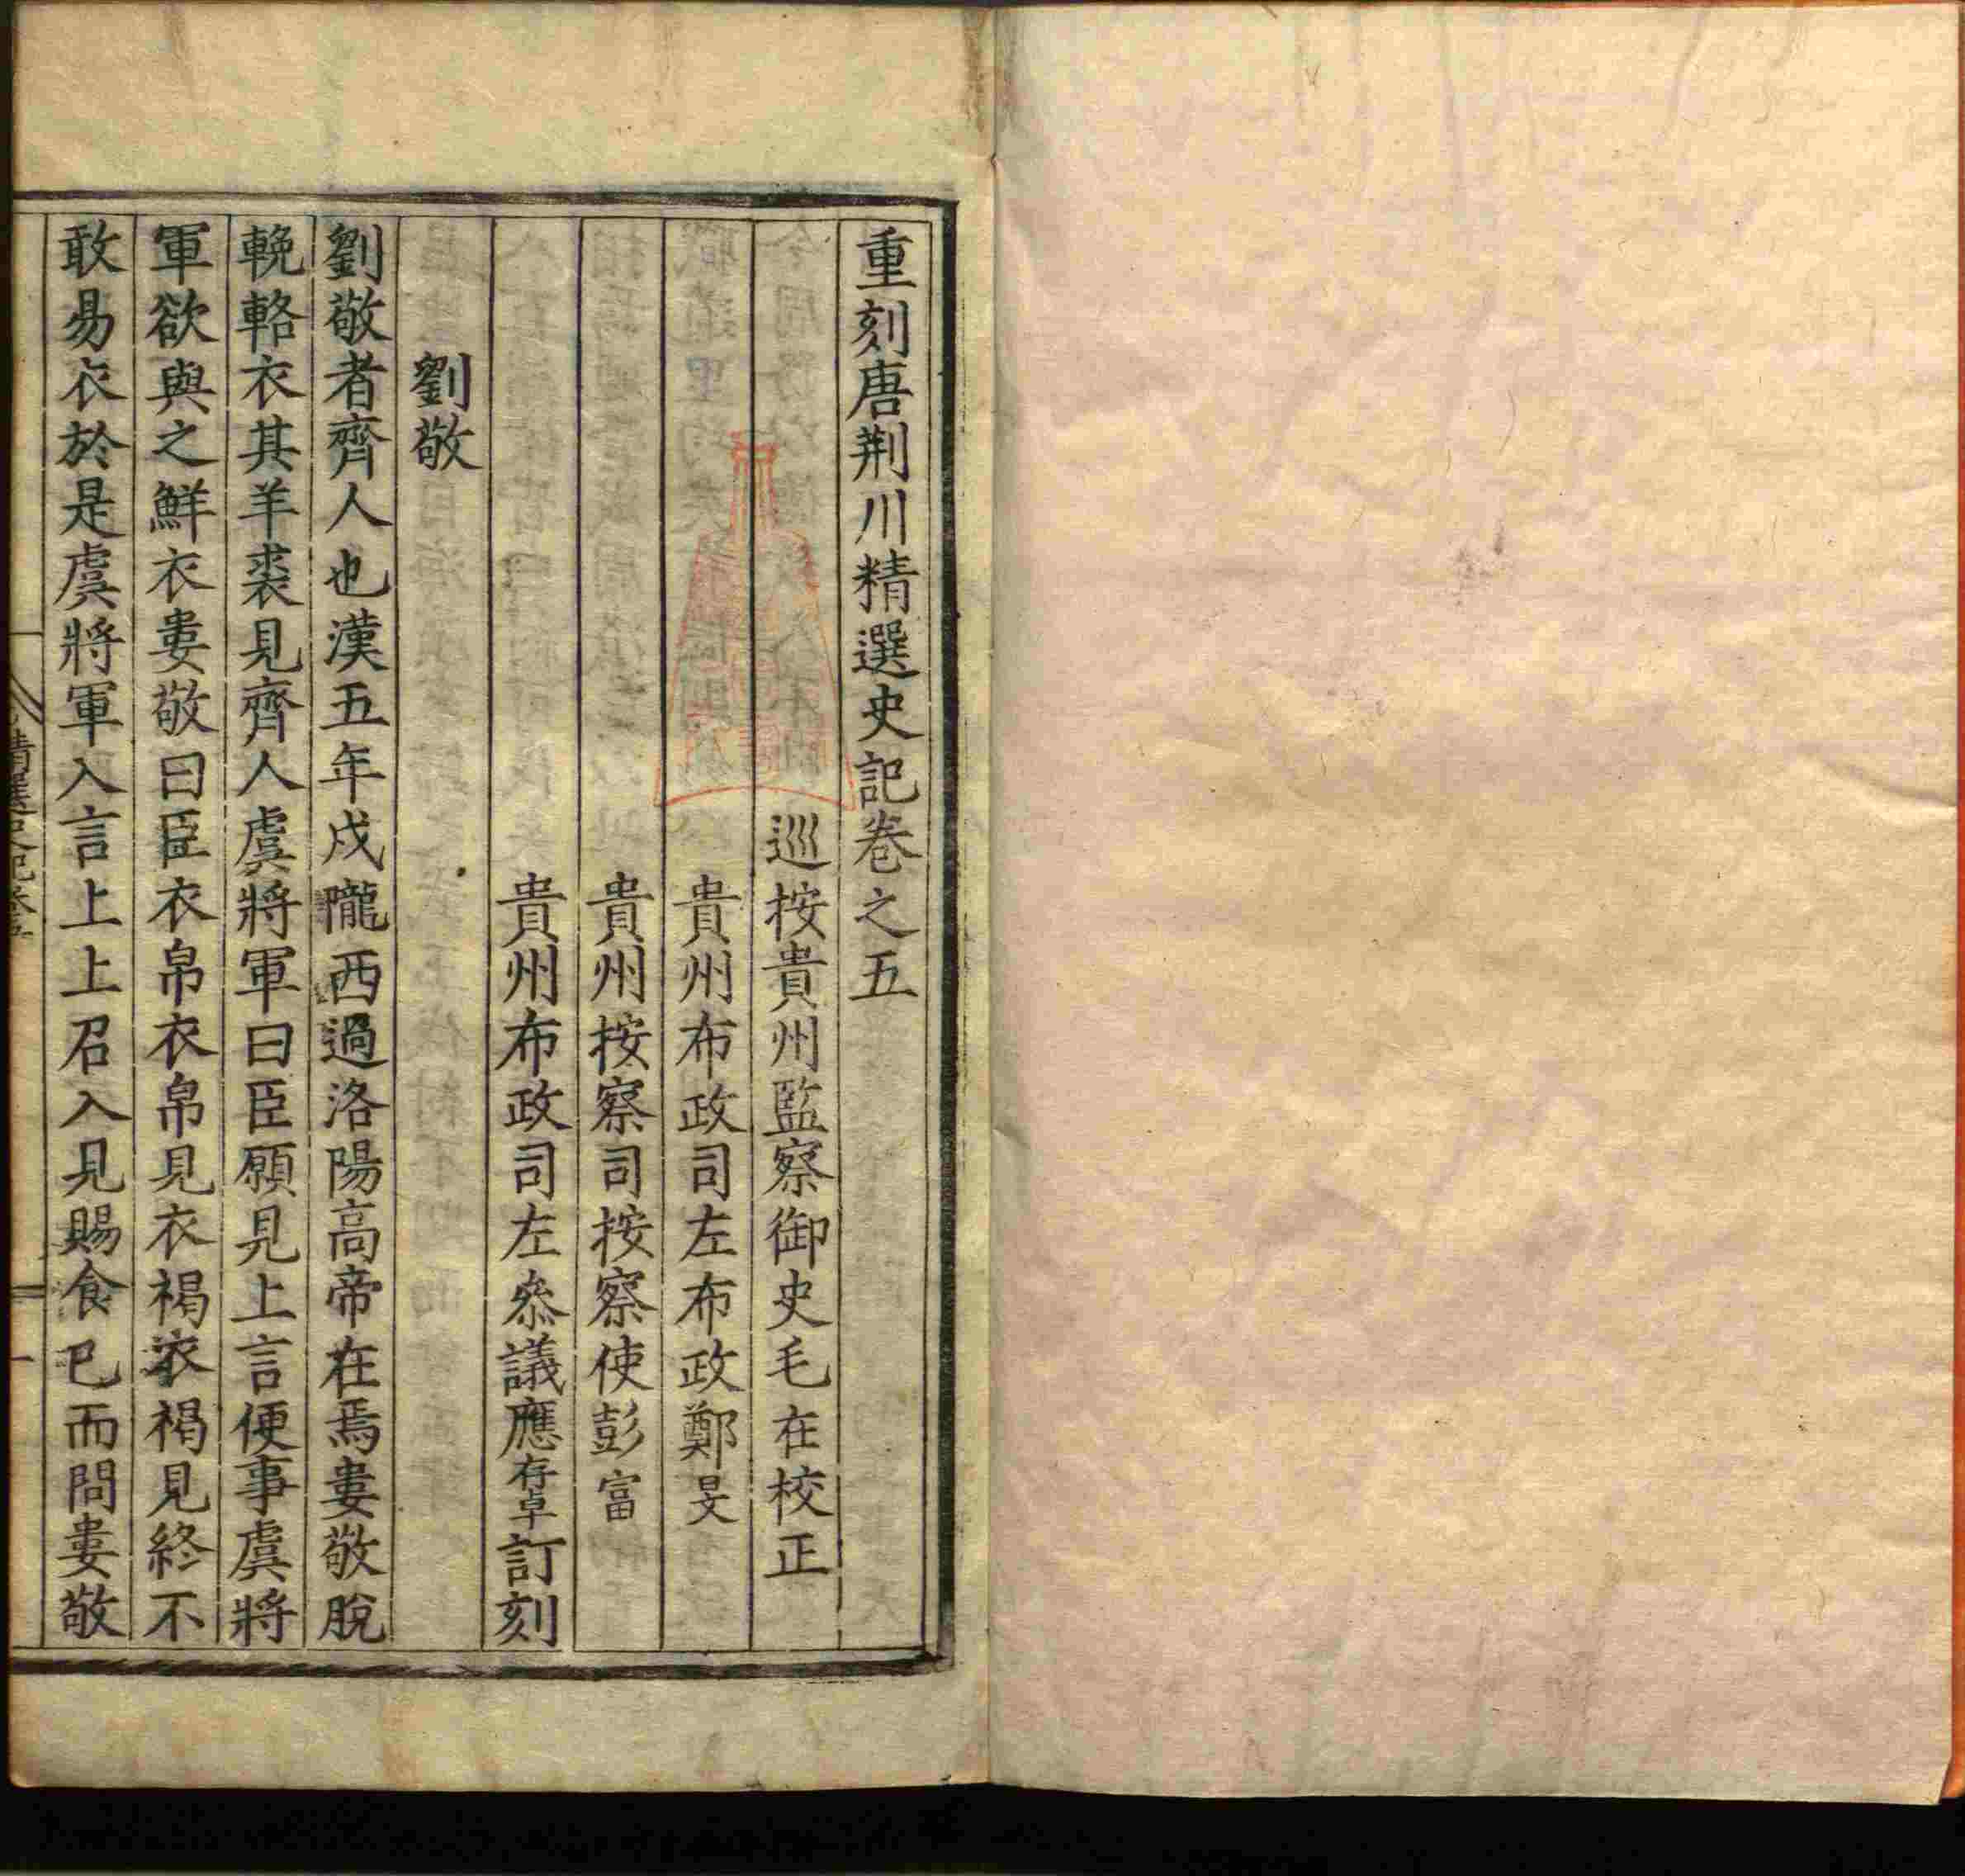 重刻唐荆川精選史記卷之五
巡按貴州監察御史毛在校正
貴州布政司左布政鄭旻
貴州按察司按察使彭富
貴州布政司左叅議應存卓訂刻
劉敬
劉敬者齊人也漢五年戍隴西過洛陽高帝在焉婁敬脫
輓輅衣其羊裘見齊人虞將軍曰臣願見上言便事虞將
軍欲與之鮮衣婁敬曰臣衣帛衣帛見衣褐衣褐見終不
敢易衣於是虞將軍入言上上召入見賜食已而問婁敬
精選史記卷五
一